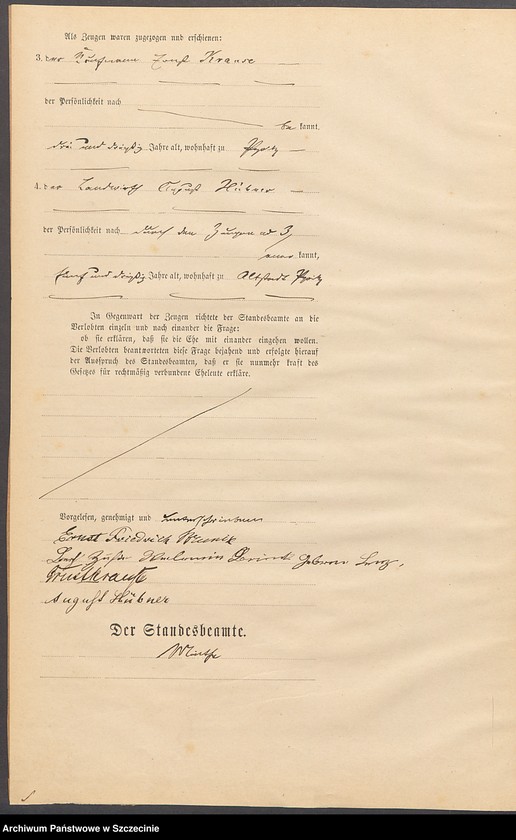 Als Zeugen waren zugezogen und erschienen:
3. der Kaufmann Ernst Krause
der Persönlichkeit nach
be kannt,
drei und dreißig Jahre alt, wohnhaft zu Pyritz
4. der Landwirth August Hübner
der Persönlichkeit nach durch den Zeugen ad 3,
aner kannt,
fünf und dreißig Jahre alt, wohnhaft zu Altstadt Pyritz
In Gegenwart der Zeugen richtete der Standesbeamte an die
Verlobten einzeln und nach einander die Frage:
ob sie erklären, daß sie die Ehe mit einander eingehen wollen.
Die Verlobten beantworteten diese Frage bejahend und erfolgte hierauf
der Ausspruch des Standesbeamten, daß er sie nunmehr kraft des
Gesetzes für rechtmäßig verbundene Eheleute erkläre.
Vorgelesen, genehmigt und unterschrieben
Ernst Friedrich
geborene
Ernst Krause
August Hübner
Der Standesbeamte.
Archiwum Państwowe w Szczecinie